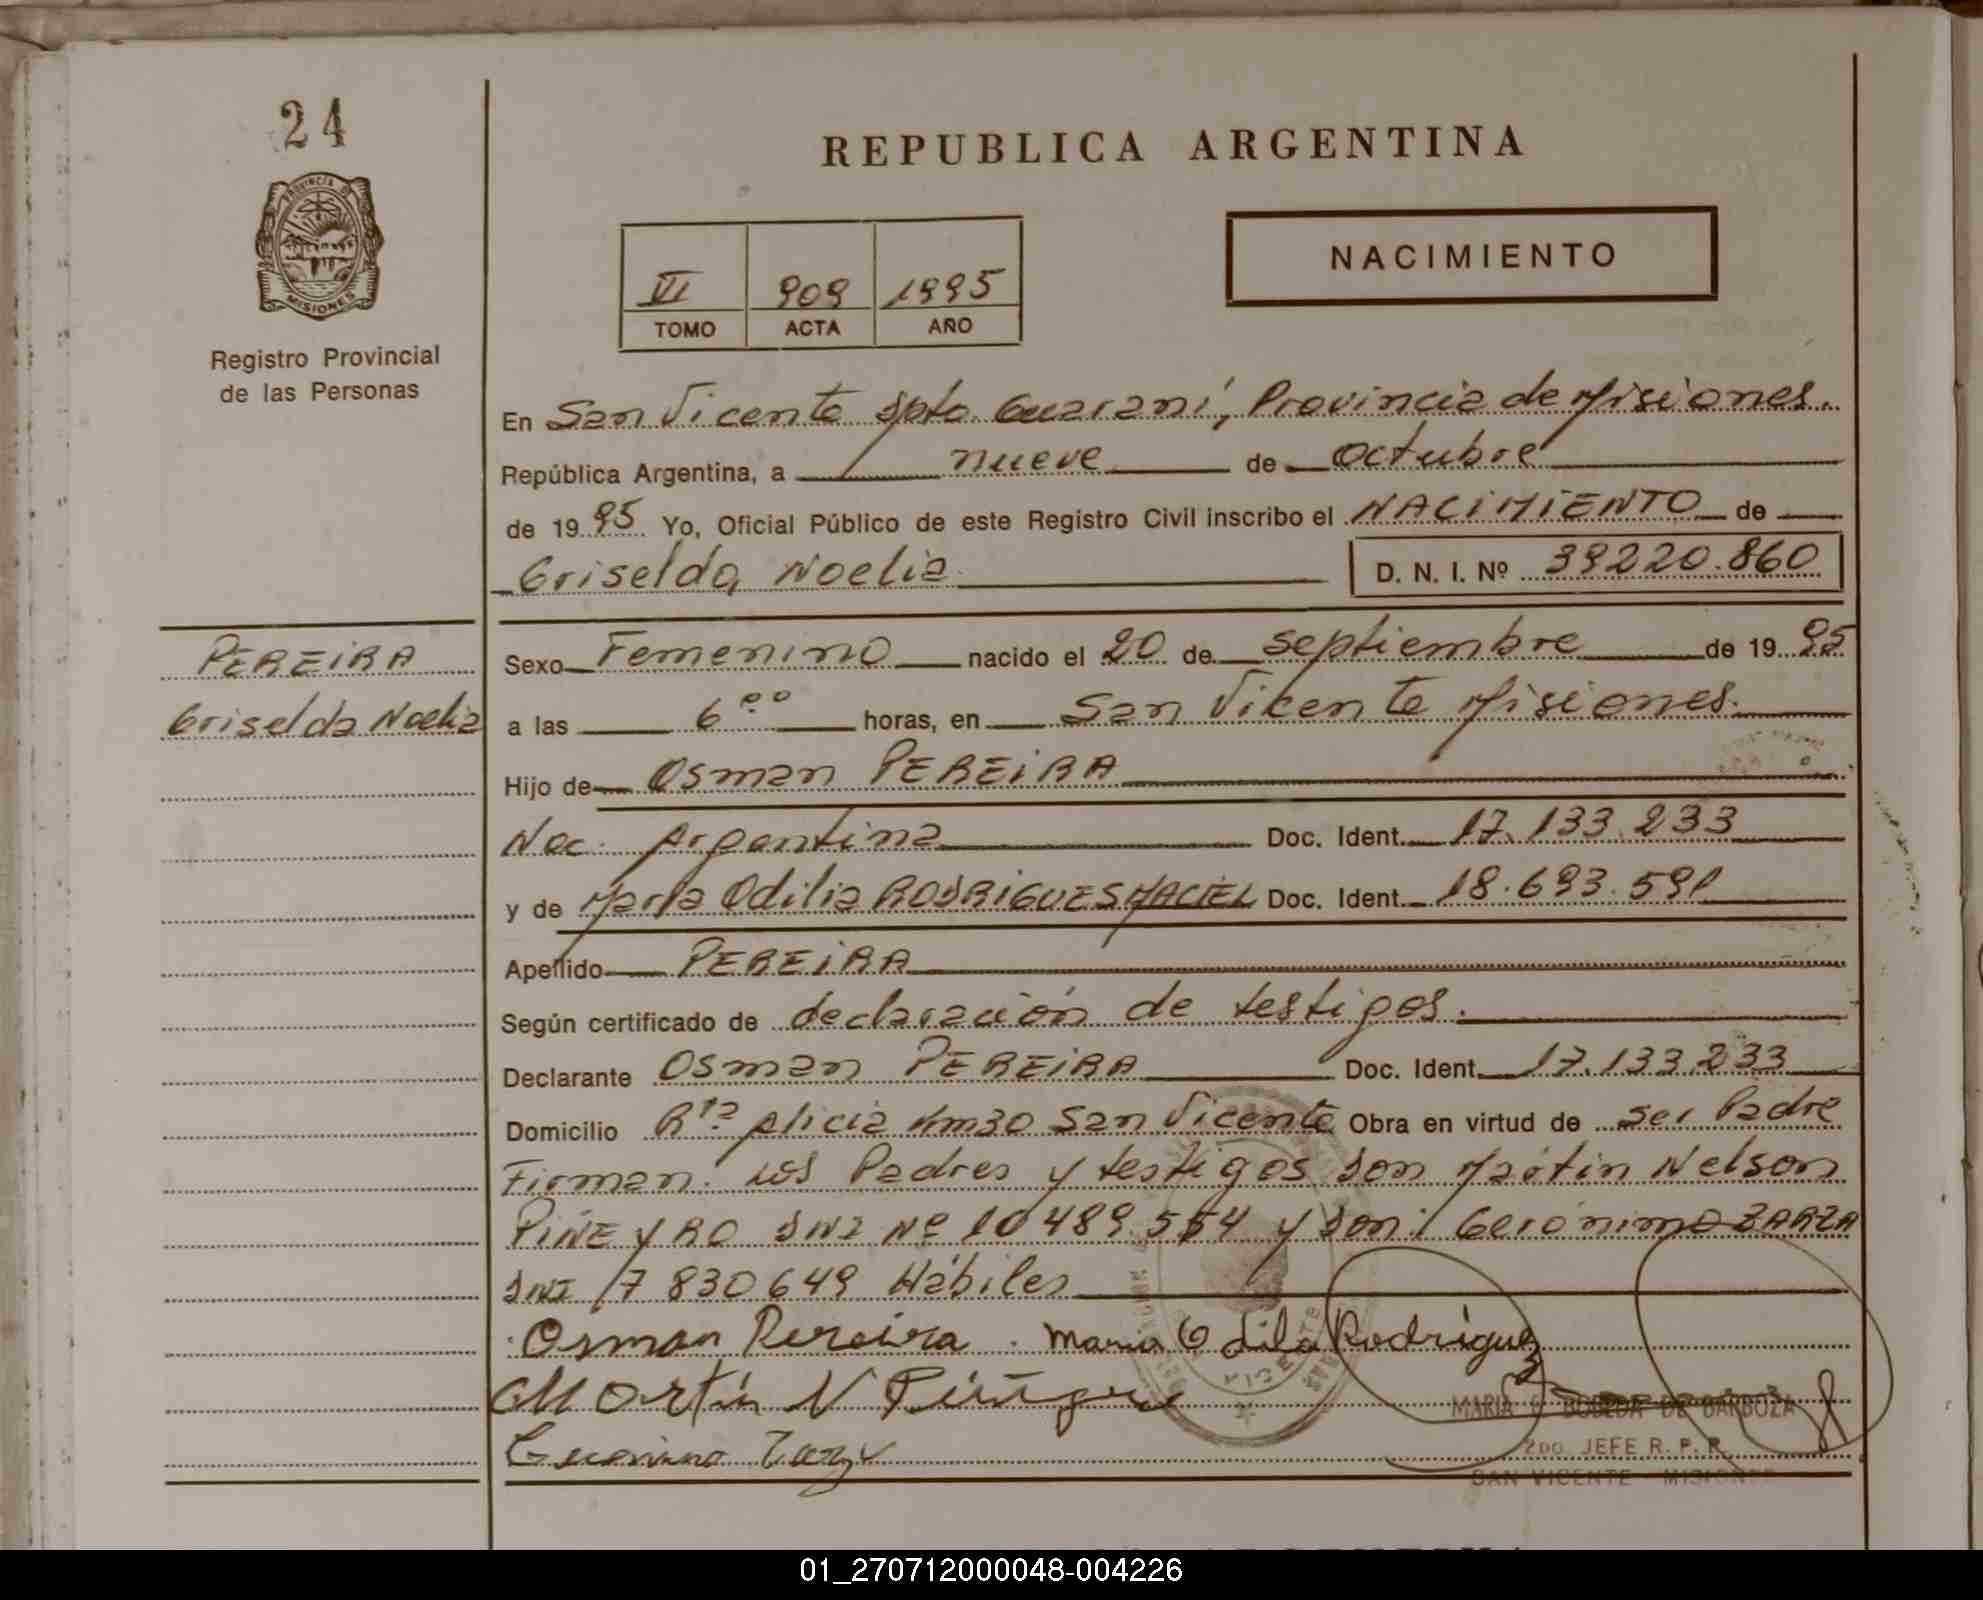 24
PROVINCIA DE
MISIONES
Registro Provincial
de las Personas
REPUBLICA ARGENTINA
NACIMIENTO
VI 909 1995
TOMO ACTA AÑO
En San Vicente Dpto. Guaraní, Provincia de Misiones.
República Argentina, a nueve de octubre
de 1995 Yo, Oficial Público de este Registro Civil inscribo el NACIMIENTO de
Griselda Noelia D. N. I. Nº 39220.860
PEREIRA
Griselda Noelia
Sexo Femenino nacido el 20 de septiembre de 1995
a las 6 horas, en San Vicente Misiones.
Hijo de Osman PEREIRA
Nac. Argentina Doc. Ident. 17.133.233
y de Maria Odilia RODRIGUES MACIEL Doc. Ident. 18.693.591
Apellido PEREIRA
Según certificado de declaración de testigos.
Declarante Osman PEREIRA Doc. Ident. 17.133.233
Domicilio Rta Alicia Km30 San Vicente Obra en virtud de ser Padre
Firman. Los Padres y testigos Don Martin Nelson
PIÑEYRO DNI Nº 10489.554 y Don: Gerónimo ZARZA
DNI 17830649 Hábiles
Osman Pereira. Maria Odila Rodriguez
Martín N Piñeyro
Geronimo Zarza
MARIA DE BARBOZA
2DO. JEFE R. P. P.
SAN VICENTE - MISIONES
01_270712000048-004226